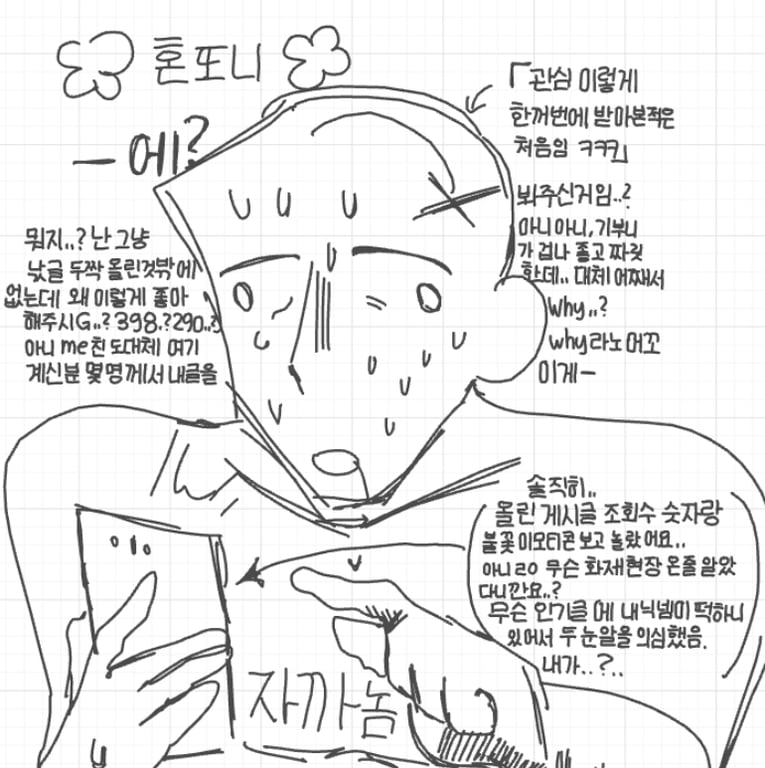 혼또니
ㅡ 에?
「관심 이렇게
한꺼번에 받아본적은
처음임 ㅋㅋㅋ」
봐주신거임..?
아니아니, 기부니
가 겁나 좋고 짜릿
한데.. 대체 어째서
Why..?
why라노 어꼬
이게ㅡ
뭐지..? 난 그냥
낪글 두짝 올린것밖에
없는데 왜 이렇게 좋아
해주시G..? 398.? 290..?
아니 me친 도대체 여기
계신분 몇 명께서 내글을
솔직히..
올린 게시글 조회수 숫자랑
불꽃 이모티콘 보고 놀랐어요..
아니ㄹㅇ 무슨 화재현장 온줄 알았
다니깐요..?
무슨 인기글 에 내닉넴이 떡하니
있어서 두 눈알을 의심했음.
내가..?..
자까놈